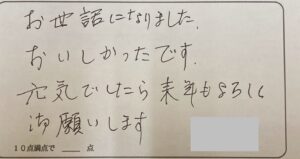 お世話になりました。
おいしかったです。
元気でしたら来年もよろしく
御願いします
10点満点で____点